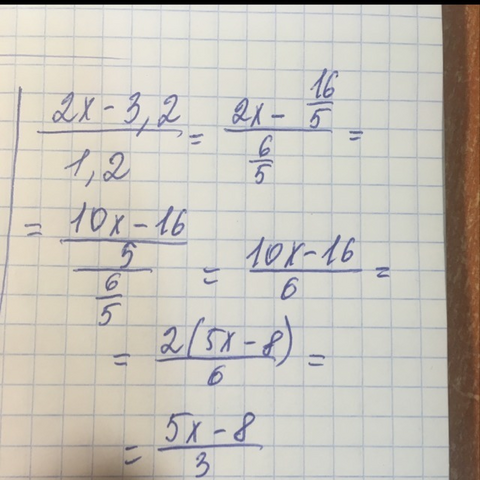 (2x - 3,2)/(1,2) = (2x - 16/5)/(6/5) =
= ((10x - 16)/5)/(6/5) = (10x - 16)/6 =
= 2(5x - 8)/6 =
= (5x - 8)/3